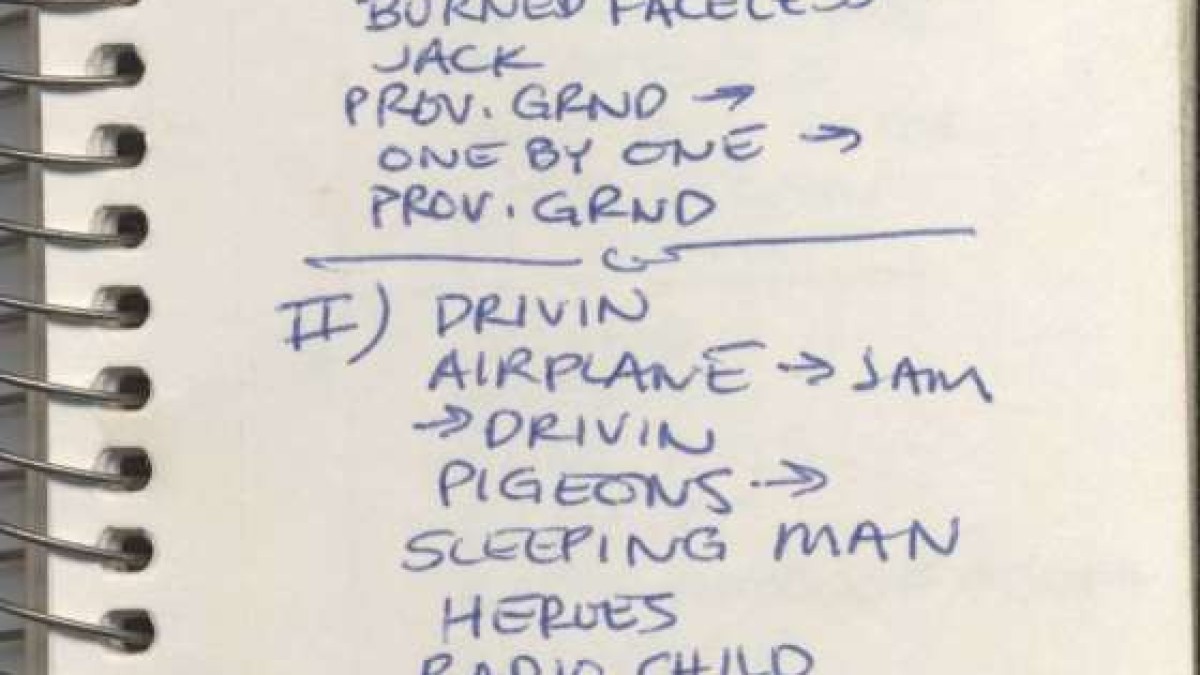 BURNED FACELESS
JACK
PROV. GRND →
ONE BY ONE →
PROV. GRND
II) DRIVIN
AIRPLANE → JAM
→ DRIVIN
PIGEONS →
SLEEPING MAN
HEROES
RADIO CHILD